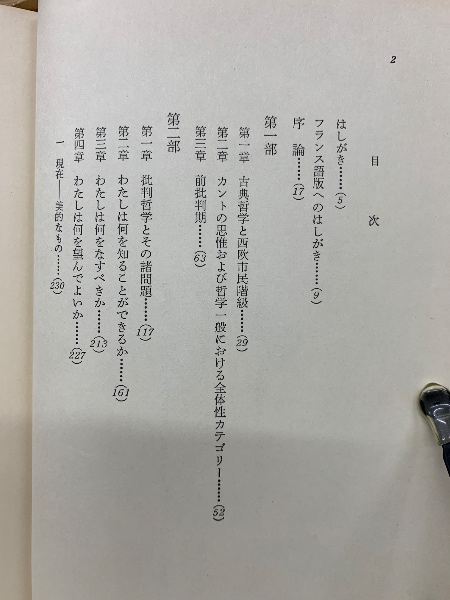 2
目次
はしがき……(5)
フランス語版へのはしがき……(9)
序論……(17)
第一部
第一章 古典哲学と西欧市民階級……(29)
第二章 カントの思惟および哲学一般における全体性カテゴリー……(52)
第三章 前批判期……(63)
第二部
第一章 批判哲学とその諸問題……(117)
第二章 わたしは何を知ることができるか……(161)
第三章 わたしは何をなすべきか……(213)
第四章 わたしは何を望んでよいか……(227)
一 現在——美的なもの……(230)